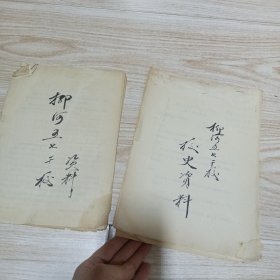 柳河五七干校
资料
柳河五七干校
校史资料